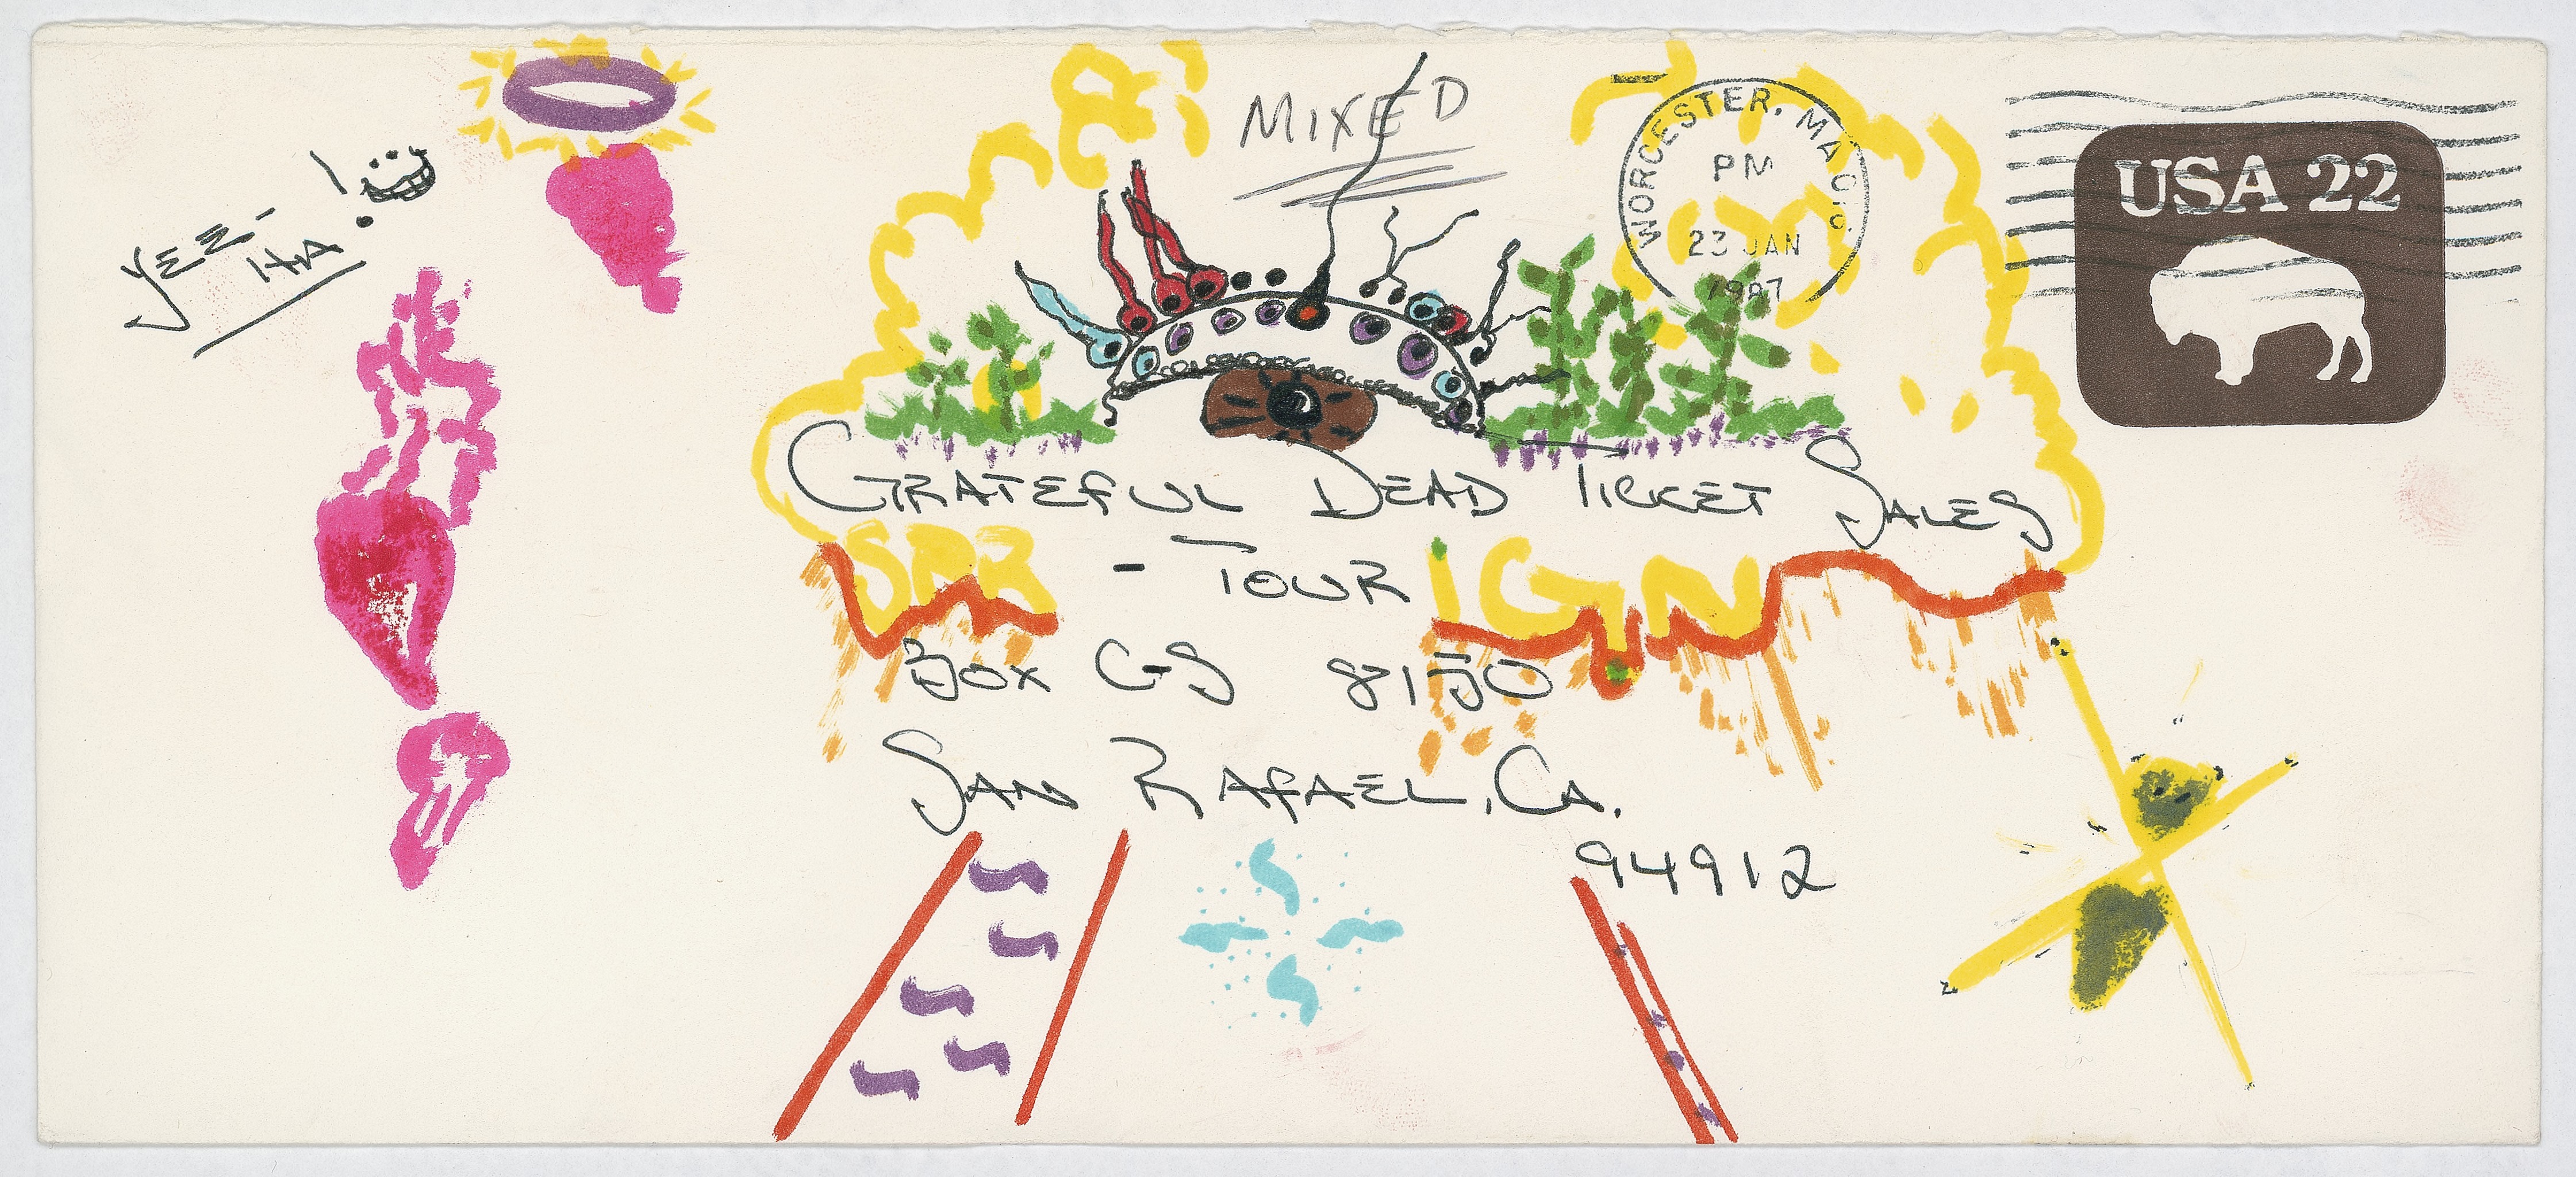 MIXED
WORCESTER, MA 016
PM
23 JAN
1987
USA 22
YEE-
HA!
GRATEFUL DEAD TICKET SALES
SPR ING
- TOUR
BOX GS 8150
SAN RAFAEL, CA.
94912